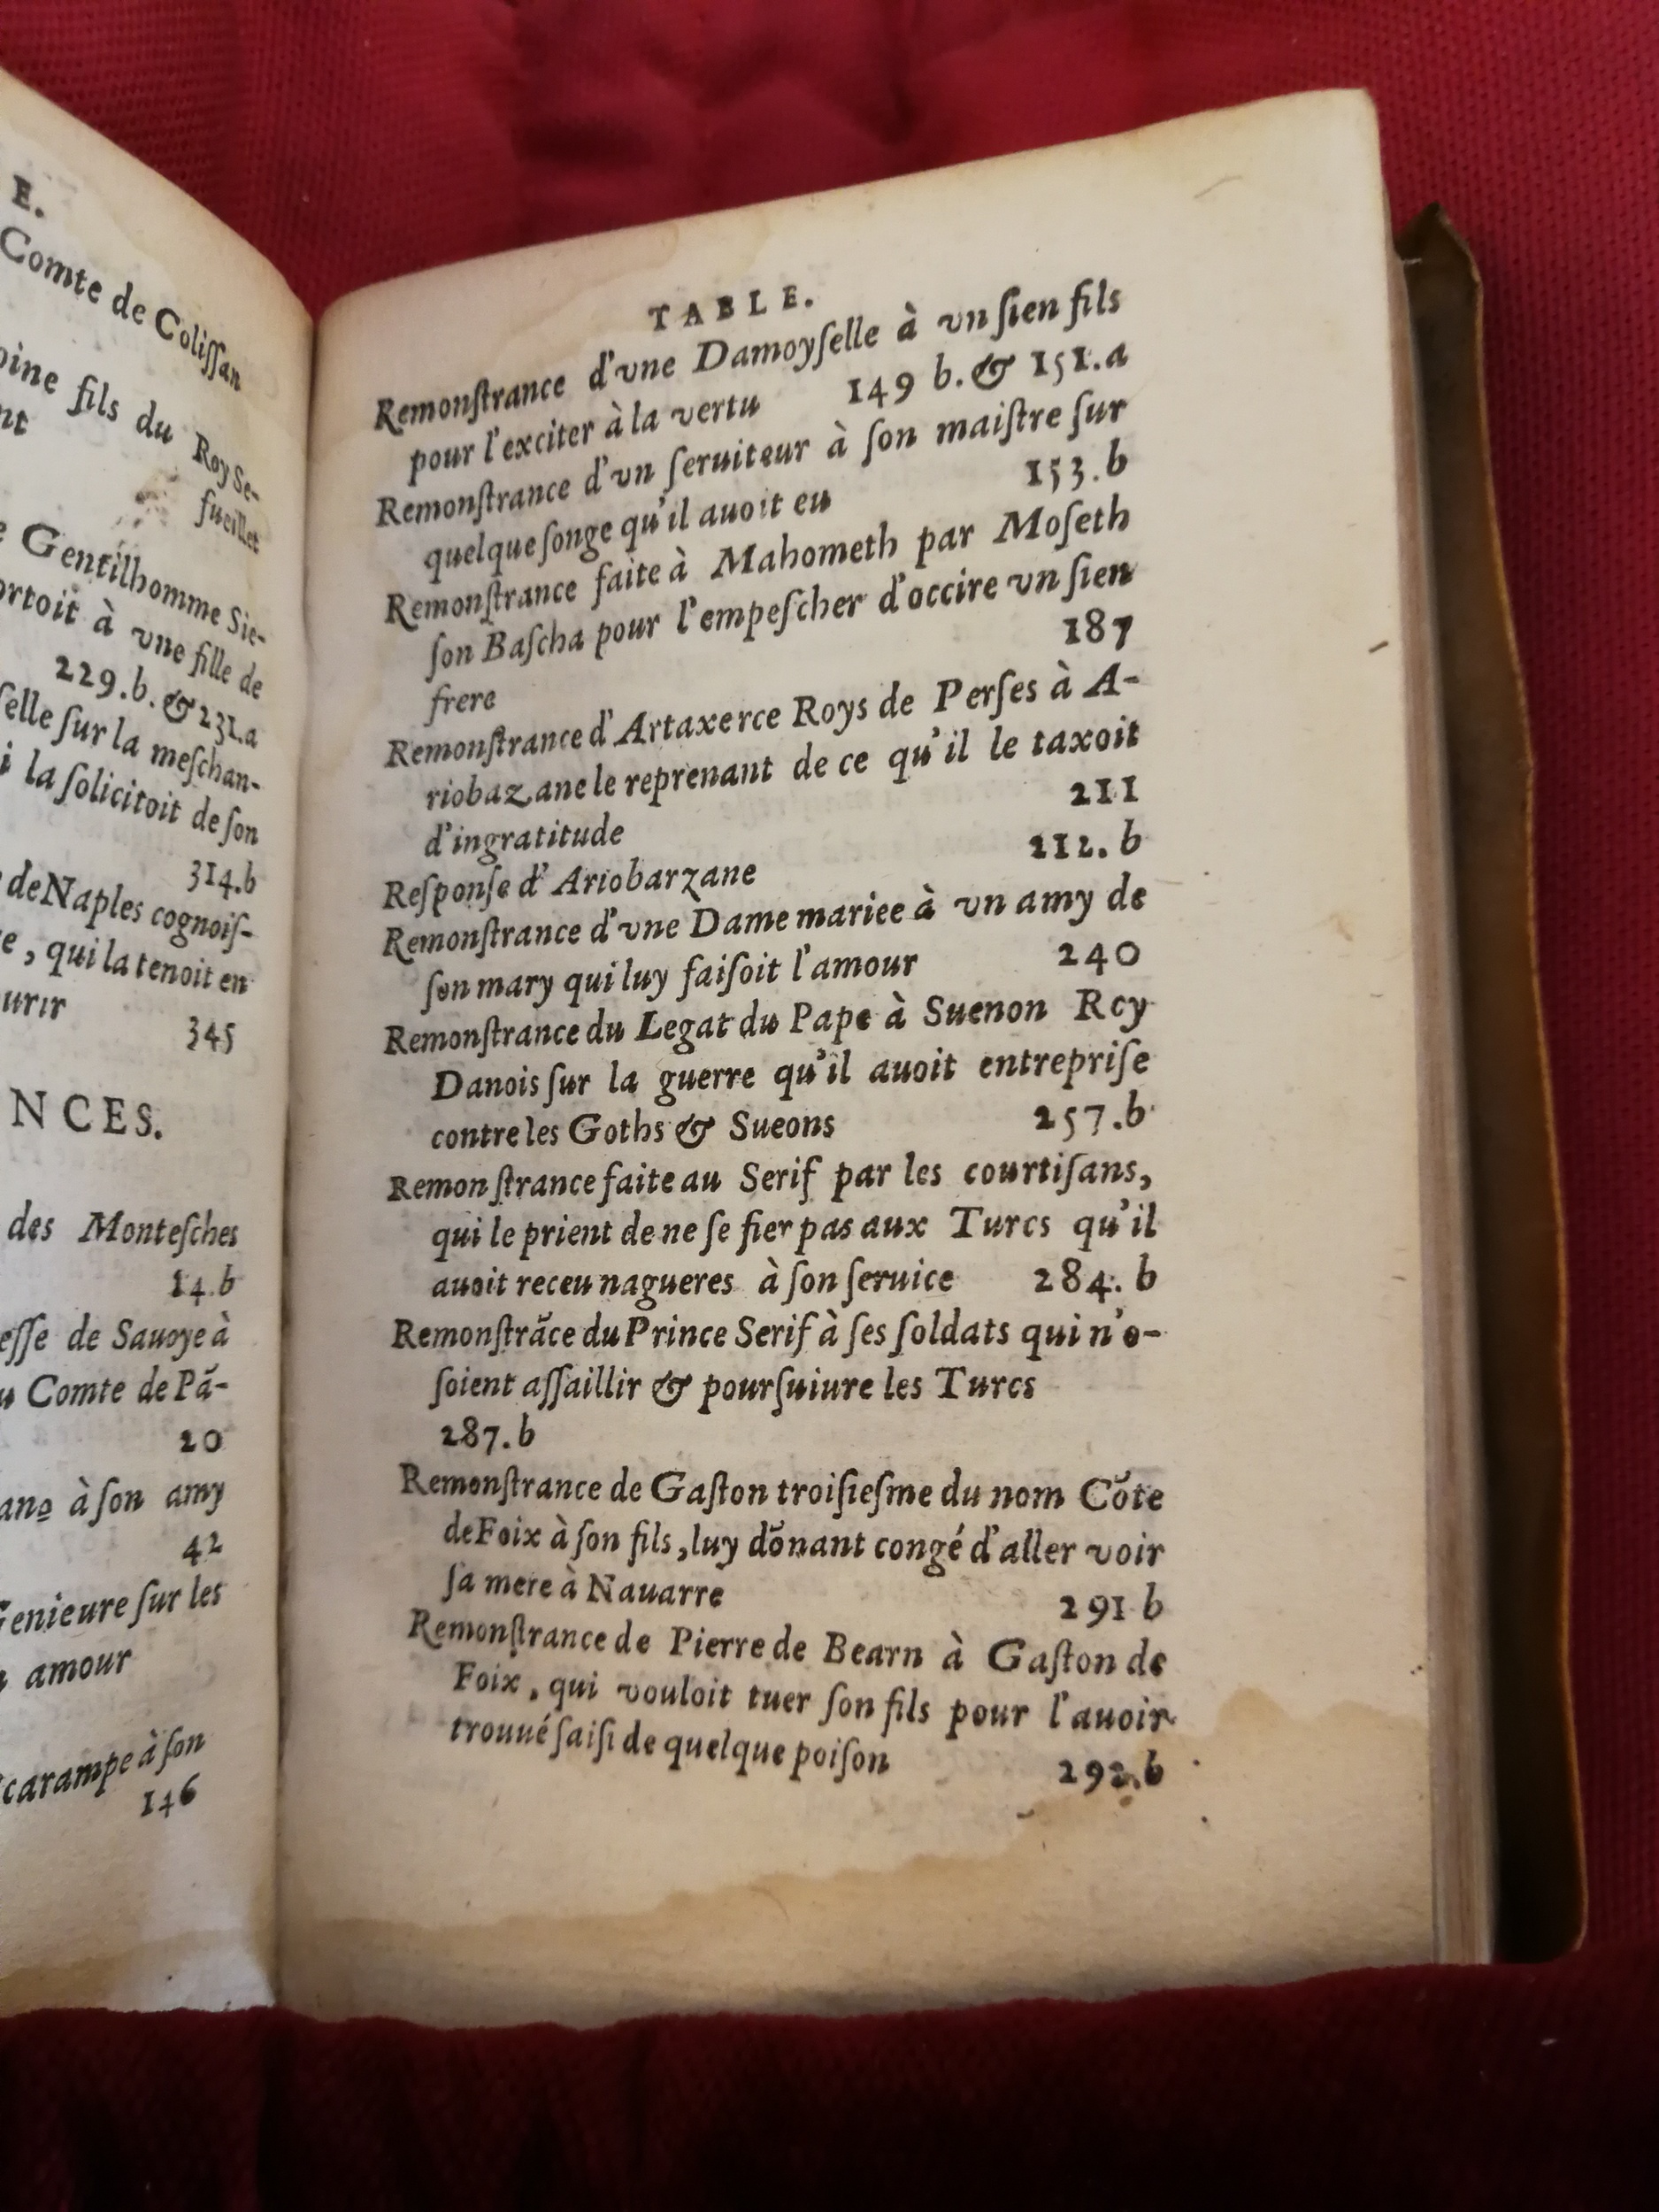 E.
Comte de Coliſſan
fils du Roy Se-
fueillet
Gentilhomme Sie-
à vne fille de
229.b. & 231.a
ſur la meſchan-
la ſolicitoit de ſon
314.b
de Naples cognoiſ-
, qui la tenoit en
345
NCES.
des Monteſches
14.b
de Sauoye à
Comte de Pã-
20
à ſon amy
42
ſur les
amour
à ſon
146
TABLE.
Remonſtrance d'vne Damoyſelle à vn ſien fils
pour l'exciter à la vertu 149 b. & 151.a
Remonſtrance d'vn ſeruiteur à ſon maiſtre ſur
quelque ſonge qu'il auoit eu 153.b
Remonſtrance faite à Mahometh par Moſeth
ſon Baſcha pour l'empeſcher d'occire vn ſien
frere 187
Remonſtrance d'Artaxerce Roys de Perſes à A-
riobazane le reprenant de ce qu'il le taxoit
d'ingratitude 211
Reſponſe d'Ariobarzane 212. b
Remonſtrance d'vne Dame mariee à vn amy de
ſon mary qui luy faiſoit l'amour 240
Remonſtrance du Legat du Pape à Suenon Roy
Danois ſur la guerre qu'il auoit entrepriſe
contre les Goths & Sueons 257.b
Remonſtrance faite au Serif par les courtiſans,
qui le prient de ne ſe fier pas aux Turcs qu'il
auoit receu nagueres à ſon ſeruice 284. b
Remonſtrãce du Prince Serif à ſes ſoldats qui n'o-
ſoient aſſaillir & pourſuiure les Turcs
287.b
Remonſtrance de Gaſton troiſieſme du nom Cõte
de Foix à ſon fils, luy dõnant congé d'aller voir
ſa mere à Nauarre 291 b
Remonſtrance de Pierre de Bearn à Gaſton de
Foix, qui vouloit tuer ſon fils pour l'auoir
trouué ſaiſi de quelque poiſon 292.b